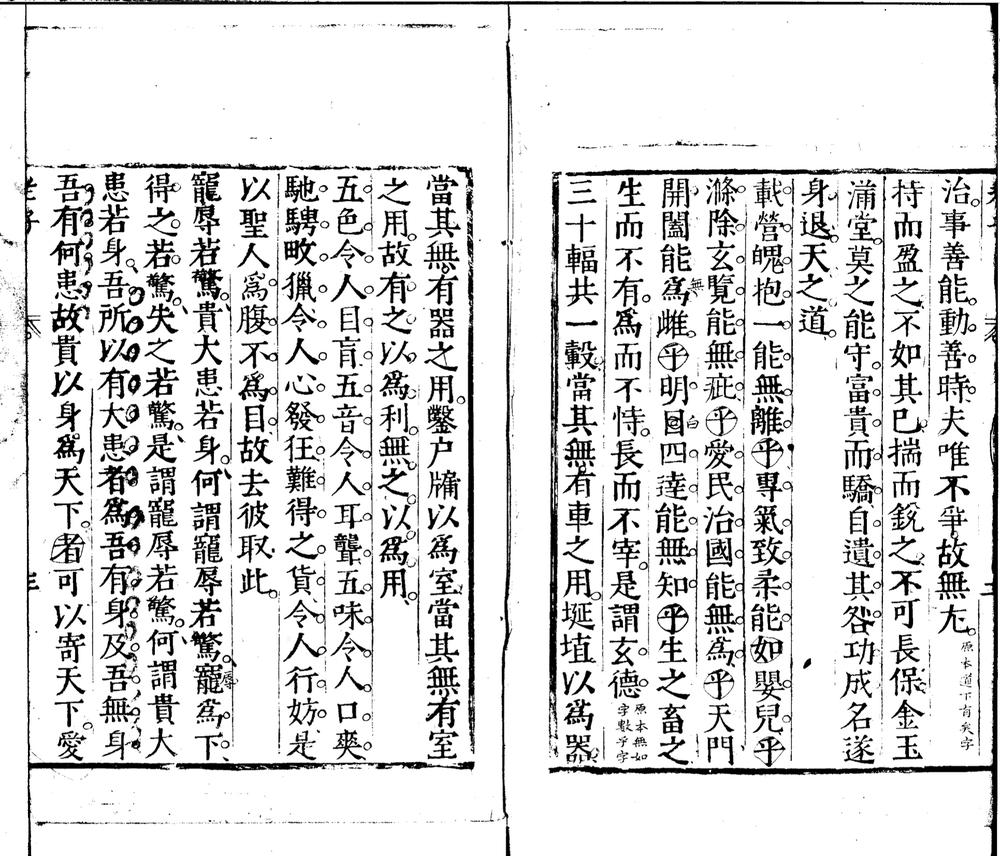 治事善能動善時夫唯不爭故無尤原本道下有矣字
持而盈之不如其已揣而銳之不可長保金玉
滿堂莫之能守富貴而驕自遺其咎功成名遂
身退天之道
載營魄抱一能無離乎專氣致柔能如嬰兒乎
滌除玄覽能無疵乎愛民治國能無爲乎天門
開闔能爲無雌乎明白四達能無知乎生之畜之
生而不有爲而不恃長而不宰是謂玄德原本無如字數乎字
三十輻共一轂當其無有車之用埏埴以爲器
當其無有器之用鑿户牖以爲室當其無有室
之用故有之以爲利無之以爲用
五色令人目盲五音令人耳聾五味令人口爽
馳騁畋獵令人心發狂難得之貨令人行妨是
以聖人爲腹不爲目故去彼取此
寵辱若驚貴大患若身何謂寵辱若驚寵辱爲下
得之若驚失之若驚是謂寵辱若驚何謂貴大
患若身吾所以有大患者爲吾有身及吾無身
吾有何患故貴以身爲天下者可以寄天下愛
老子
三